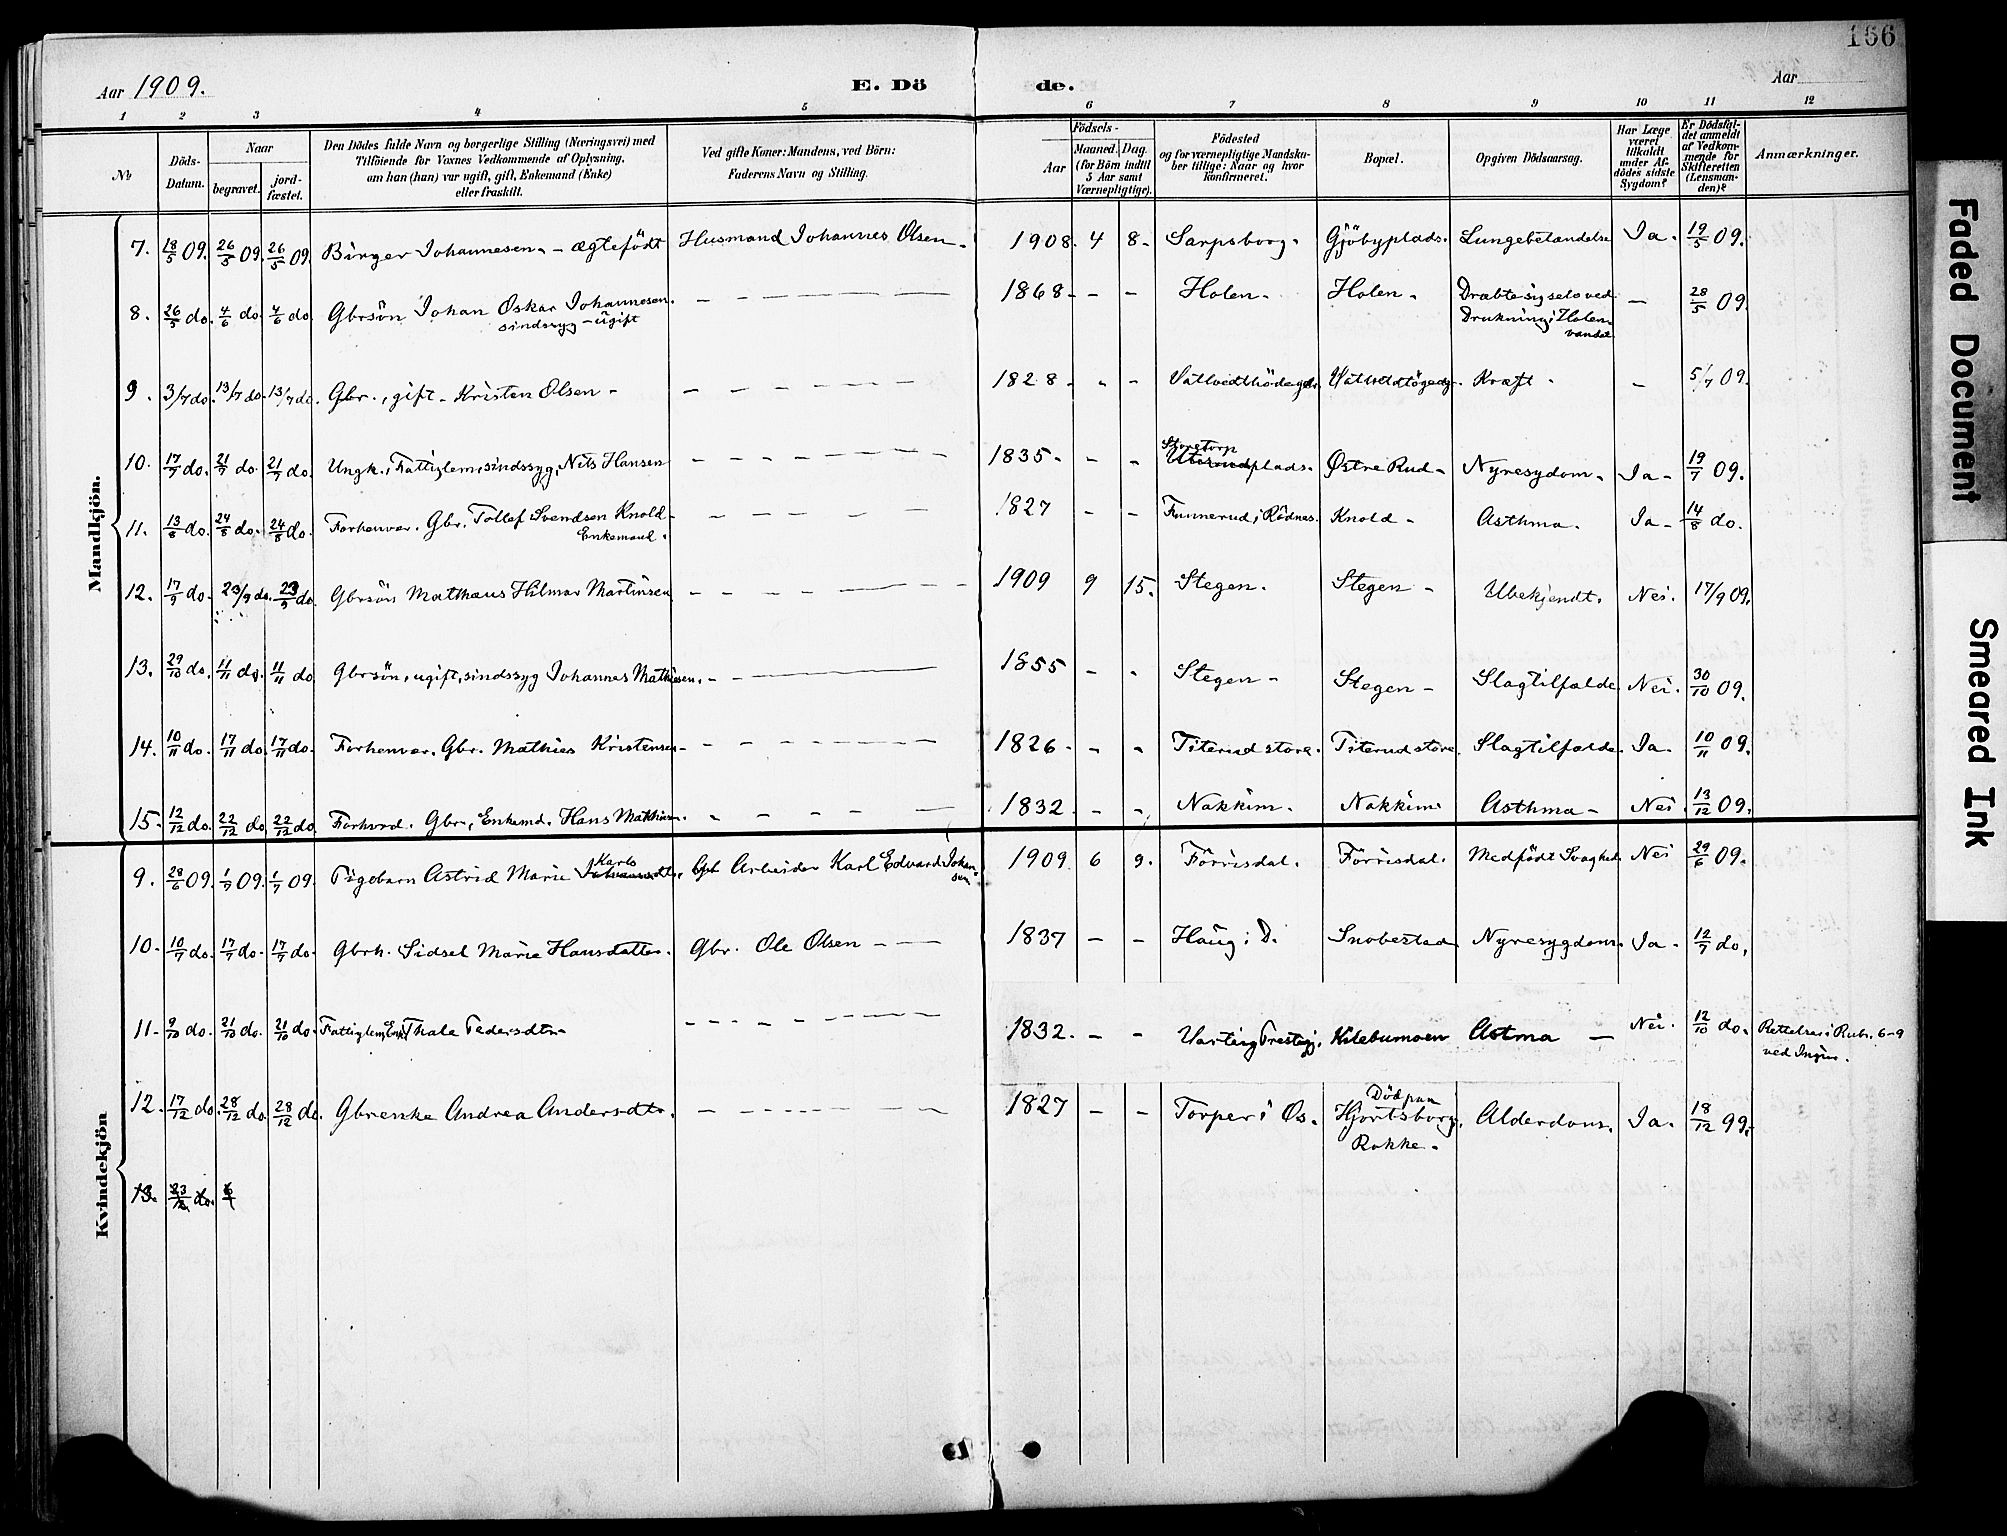 166
Aar 1909.
E. Dö
de.
Aar
1 2 3 4 5 6 7 8 9 10 11 12
No
Döds-Datum.
Naar
begravet.
jord-fæstet.
Den Dödes fulde Navn og borgerlige Stilling (Næringsvei) med
Tilföiende for Voxnes Vedkommende af Oplysning,
om han (hun) var ugift, gift, Enkemand (Enke)
eller fraskilt.
Ved gifte Koner: Mandens, ved Börn:
Faderens Navn og Stilling.
Födsels-
Aar
Maaned. Dag.
(for Börn indtil
5 Aar samt
Værnepligtige).
Födested
og for værnepligtige Mandska-
ber tillige: Naar og hvor
konfirmeret.
Bopæl.
Opgiven Dödsaarsag.
Har Læge
været
tilkaldt
under Af-
dödes sidste
Sygdom?
Er Dödsfal-
det anmeldt
af Vedkom-
mende for
Skifteretten
(Lensman-
den)?
Anmærkninger.
Mandkjön.
7. 18/5 09. 26/5 09. 26/5 09. Birger Johannesen. - ægtefödt Husmand Johannes Olsen. 1908. 4 8. Sarpsborg. Gjöbyplads. Lungebetændelse Ja. 19/5 09.
8. 26/5 do. 4/6 do. 4/6 do. Gbrsön Johan Oskar Johannesen. - - - 1868 - - Holen. Holen. Dræbte sig selv ved - 28/5 09.
sindssyg - ugift Drukning i Holen-
vandet
9. 3/7 do. 13/7 do. 13/7 do. Gbr., gift - Kristen Olsen - - - - 1828 - - Kræft. - 5/7 09.
10. 17/7 do. 21/7 do. 21/7 do. Ungk., Fattiglem, sindssyg, Nils Hansen - - - 1835. - - Storetorp plads. Østre Rud - Nyresydom. Ja - 19/7 09.
11. 13/8 do. 24/8 do. 24/8 do. Forhenvær. Gbr. Tollef Svendsen Knold - - - - 1827 - - Funnerud i Rödnes. Knold - Asthma. Ja - 14/8 do.
Enkemand.
12. 17/9 do. 23/9 do. 23/9 do. Gbrsön Matthæus Hilmar Martinsen - - - 1909 9 15. Stegen. Stegen - Ubekjendt. Nei. 17/9 09.
13. 29/10 do. 11/11 do. 11/11 do. Gbrsön, ugift, sindssyg Johannes Mathiesen. - - 1855 - - Stegen - Stegen - Slagtilfælde. Nei. 30/10 09.
14. 10/11 do. 17/11 do. 17/11 do. Forhenvær. Gbr. Mathias Kristensen - - - 1826 - - Titerud store. Titerud store. Slagtilfælde. Ja. 10/11 09.
15. 12/12 do. 22/12 do. 22/12 do. Forhvrd. Gbr., Enkemd. Hans Mathisen. - - - 1832 - - Nakkim. Nakkim. Asthma - Nei 13/12 09.
Kvindekjön
9. 28/6 09. 1/7 09. 1/7 09. Pigebarn Astrid Marie Karls dtr. Arbeider Karl Edvard Johan-
sen 1909 6 9. Förrisdal. Förrisdal. Medfödt Svaghed Nei 29/6 09.
10. 10/7 do. 17/7 do. 17/7 do. Gbrk. Sidsel Marie Hansdatter. Gbr. Ole Olsen - - 1837 - - Haug i D. Snobestad Nyresygdom. Ja. 12/7 do.
11. 9/10 do. 21/10 do. 21/10 do. Fattiglem, Enke Thale Pedersdtr. - - - 1832. - - Varteig Prestegj. Kilebumoen Astma - Nei. 12/10 do. Rettelser i Rubr. 6-9
ved
12. 17/12 do. 28/12 do. 28/12 do. Gbrenke Andrea Andersdtr. - - - 1827 - - Torper i Øs. Död paa Alderdom. Ja. 18/12 99.
Hjortsborg.
Rokke.
13. 23/12 do.
Faded Document
Smeared Ink